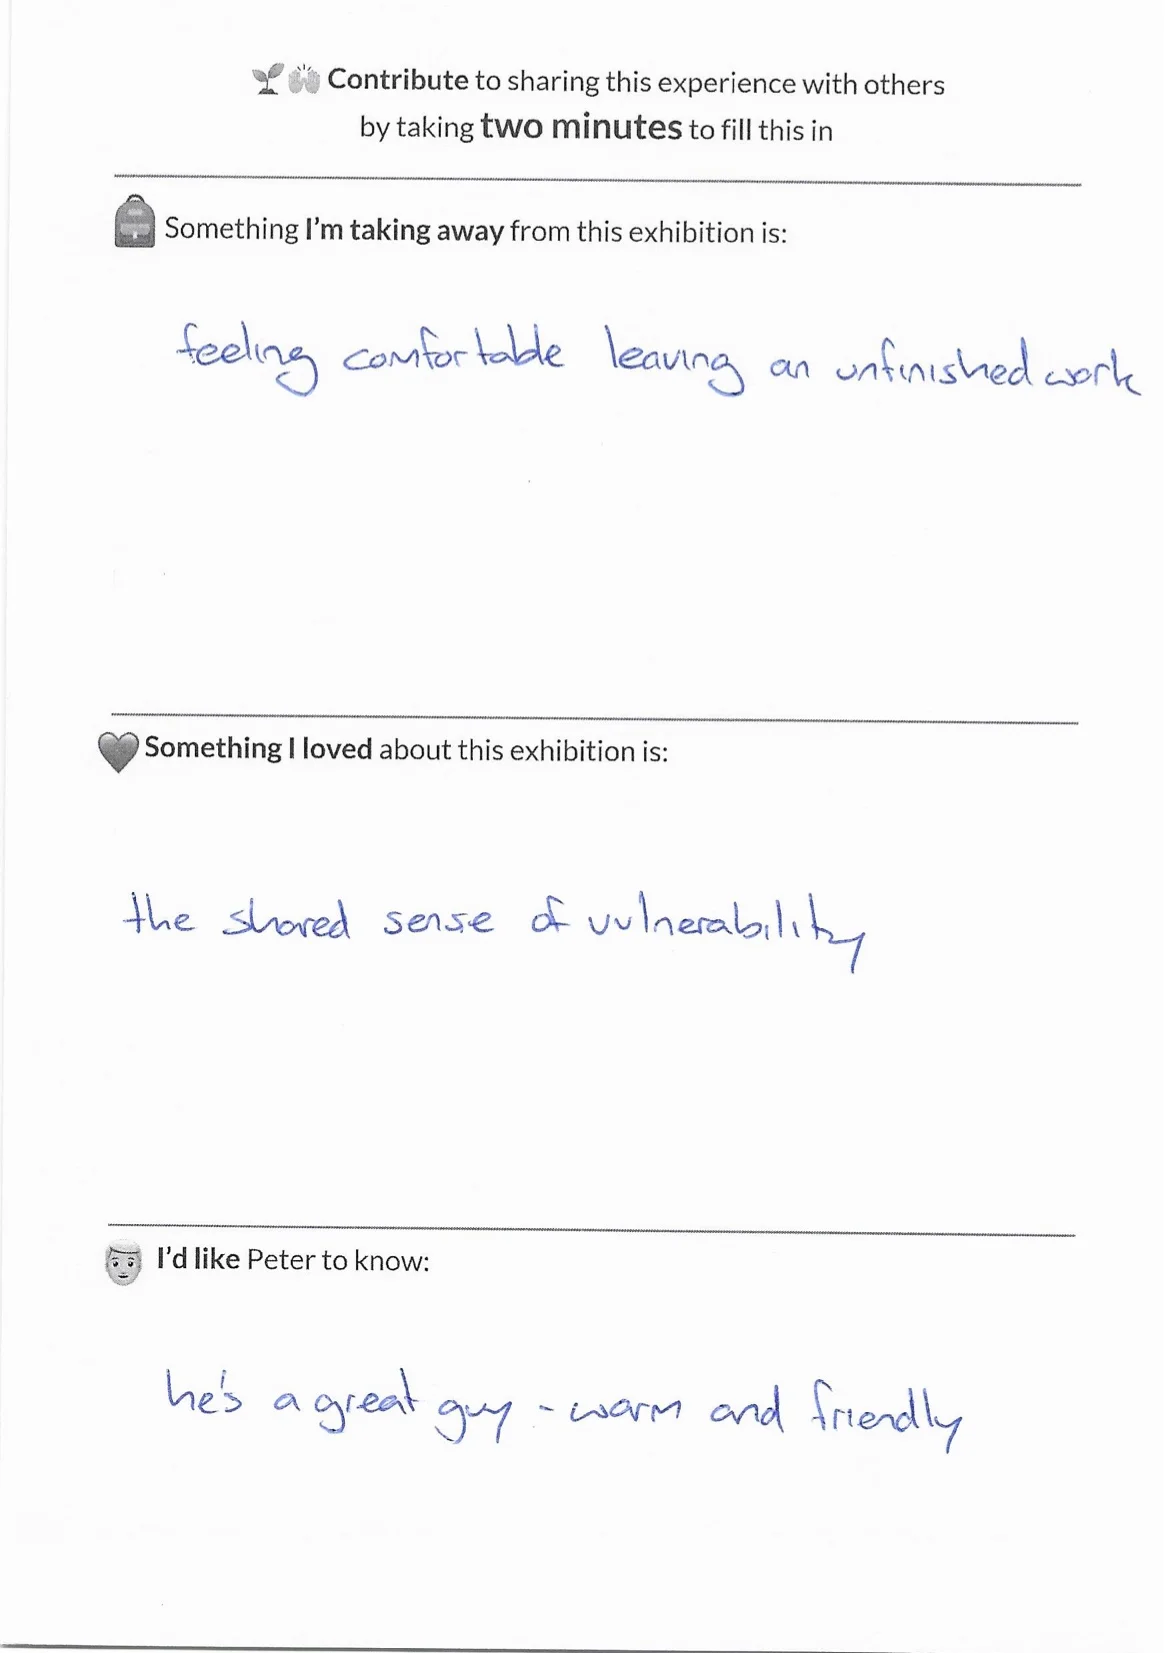 Contribute to sharing this experience with others
by taking two minutes to fill this in
Something I'm taking away from this exhibition is:
feeling comfortable leaving an unfinished work
Something I loved about this exhibition is:
the shared sense of vulnerability
I'd like Peter to know:
he's a great guy - warm and friendly